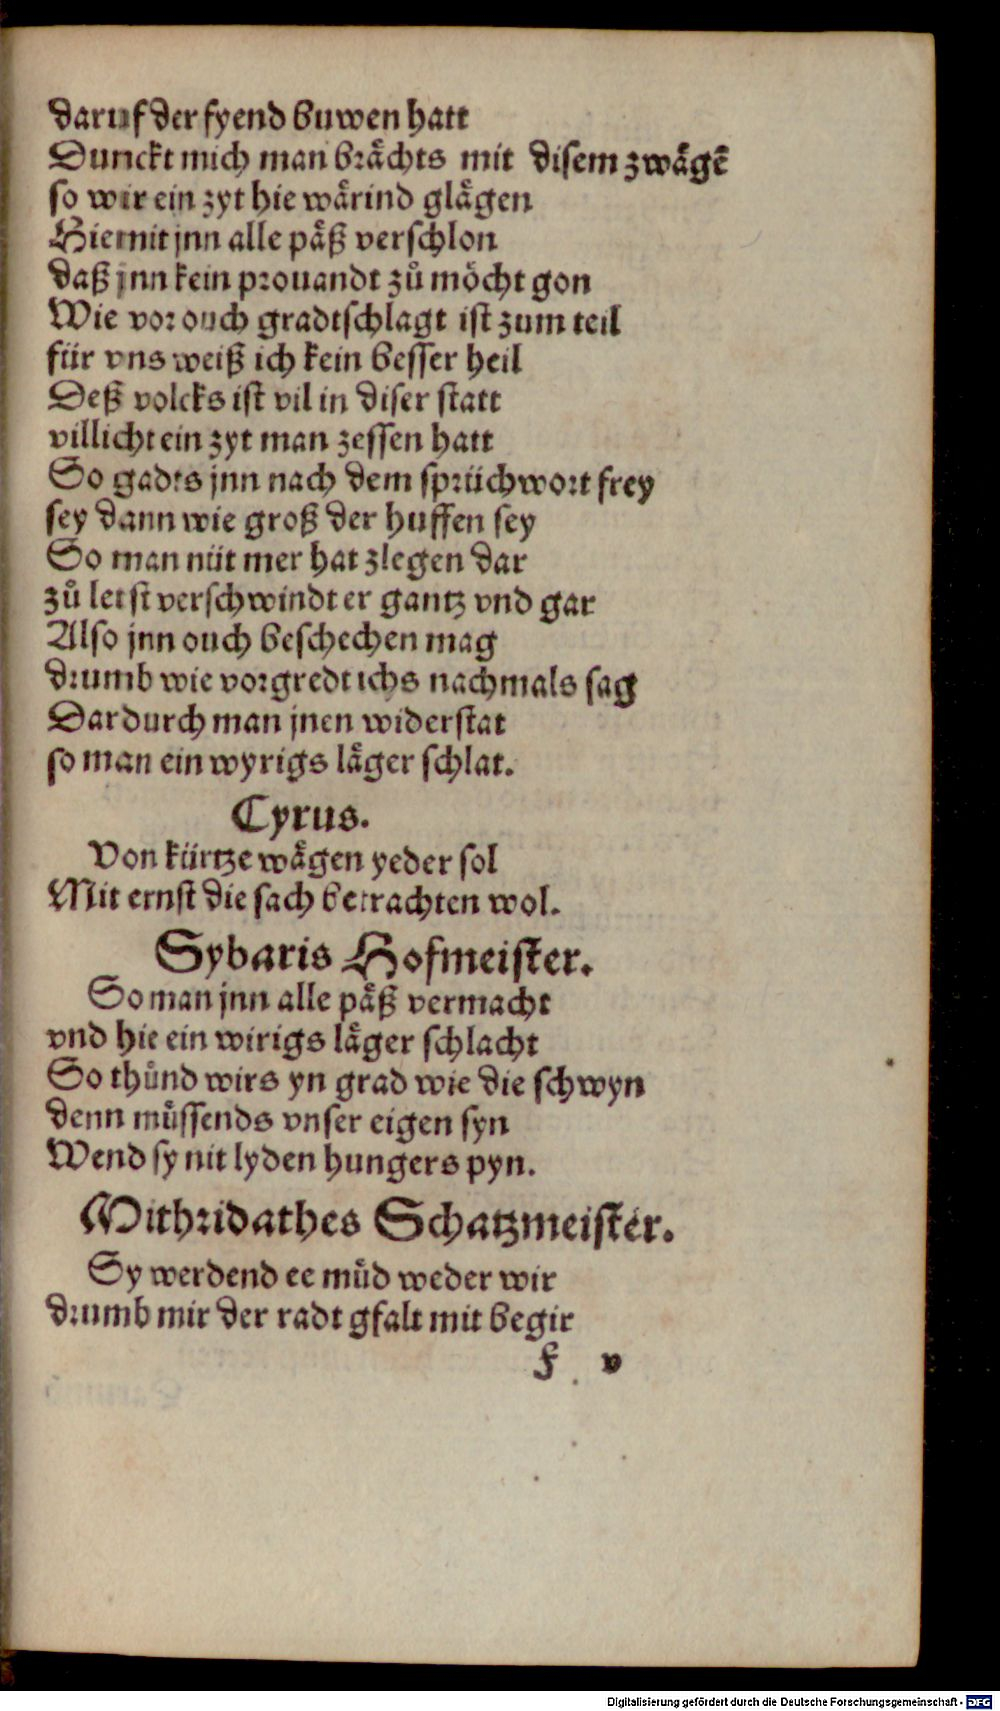 daruf der fyend buwen hatt
Dunckt mich man brächts mit disem zwägē
so wir ein zyt hie wärind glägen
Hiemit jnn alle päß verschlon
daß jnn kein prouandt zů möcht gon
Wie vor ouch gradtschlagt ist zum teil
für vns weiß ich kein besser heil
Deß volcks ist vil in diser statt
villicht ein zyt man zessen hatt
So gadts jnn nach dem sprüchwort frey
sey dann wie groß der huffen sey
So man nüt mer hat zlegen dar
zů letst verschwindt er gantz vnd gar
Also jnn ouch beschechen mag
drumb wie vorgredt ichs nachmals sag
Dardurch man jnen widerstat
so man ein wyrigs läger schlat.
Cyrus.
Von kürtze wägen yeder sol
Mit ernst die sach betrachten wol.
Sybaris Hofmeister.
So man jnn alle päß vermacht
vnd hie ein wirigs läger schlacht
So thůnd wirs yn grad wie die schwyn
denn müssends vnser eigen syn
Wend sy nit lyden hungers pyn.
Mithridathes Schatzmeister.
Sy werdend ee müd weder wir
drumb mir der radt gfalt mit begir
F v
Digitalisierung gefördert durch die Deutsche Forschungsgemeinschaft - DFG